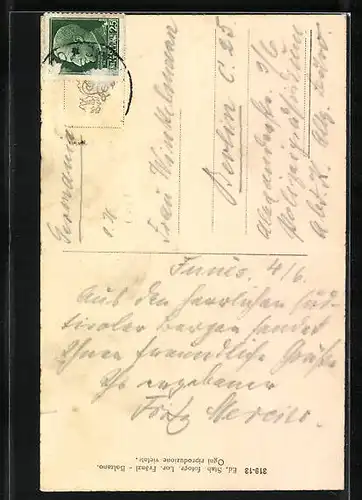 Funes, 4/6.
Aus den herrlichen Süd-
tiroler Bergen sendet
Ihnen freundliche Grüße
Ihr ergebener
Fritz
Germania
Frau Winkelmann
Berlin C. 25
Alexanderstr. 3/6
Polizeipräsidium
Abt.
319-13 Ed. Stab. fotogr. Lor. Fränzl - Bolzano.
Ogni riproduzione vietata.